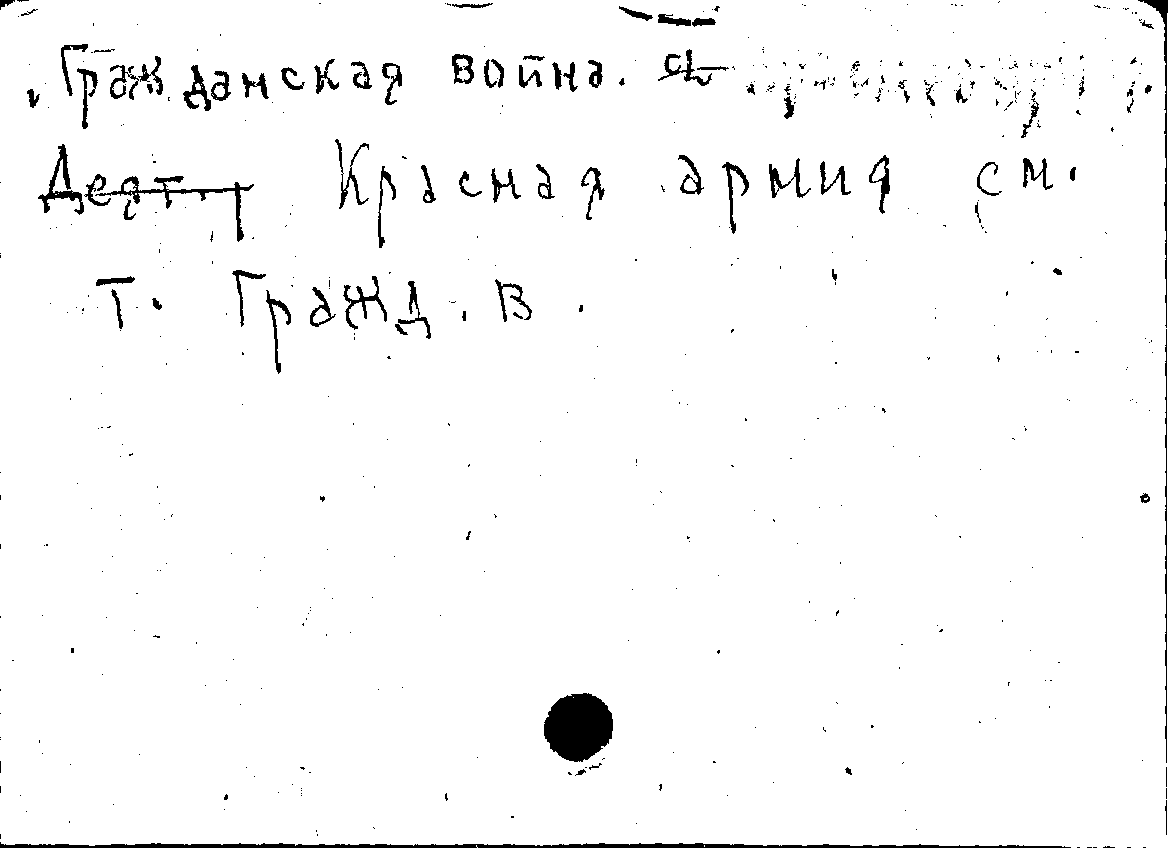 Гражданская война.
Красная армия см.
т. Гражд. в.